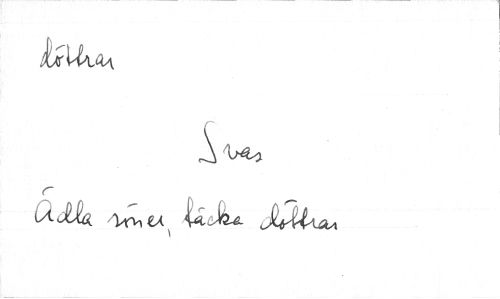 döttrar
Svas
Ädla söner, täcka döttrar